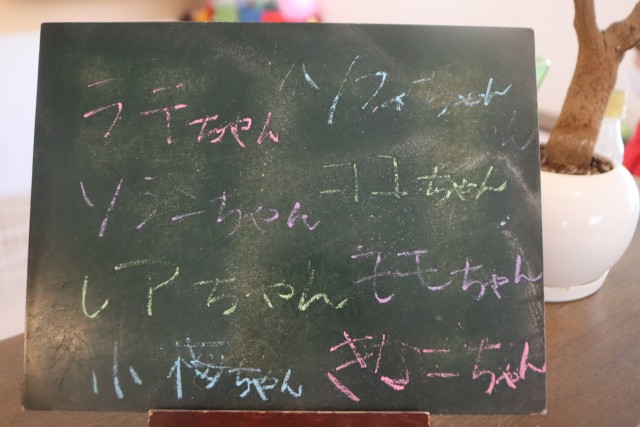 ラテちゃん
ソフィちゃん
ソラーちゃん
ココちゃん
レアちゃん
モモちゃん
小梅ちゃん
きなこちゃん